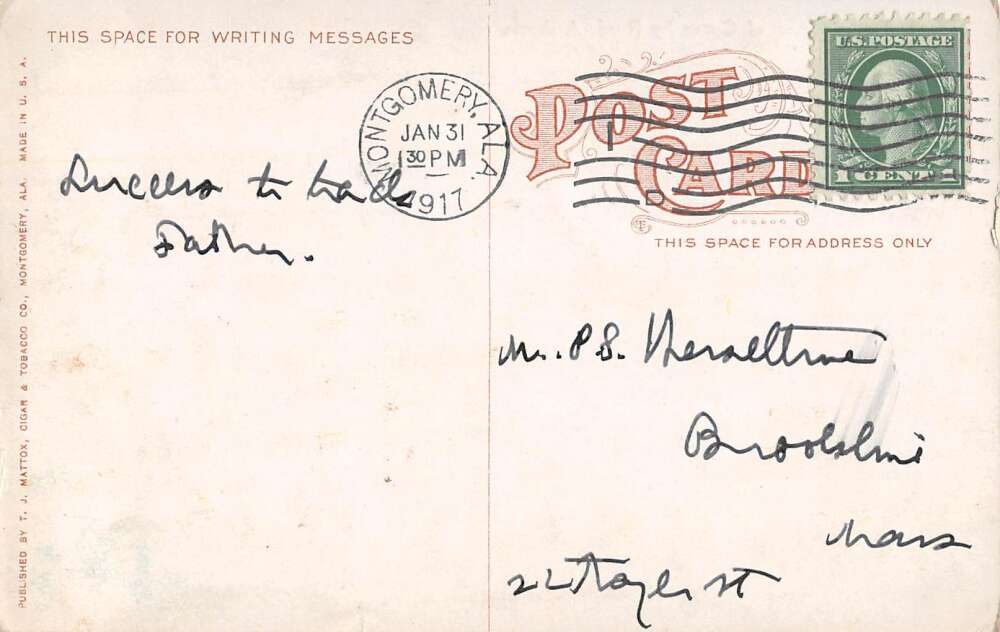 THIS SPACE FOR WRITING MESSAGES
MONTGOMERY, ALA.
JAN 31
1 30 PM
1917
POST CARD
U.S. POSTAGE
1 CENT 1
THIS SPACE FOR ADDRESS ONLY
Success to
Father.
Mr. P. S.
Brookline
Mass
St
PUBLISHED BY T. J. MATTOX, CIGAR & TOBACCO CO., MONTGOMERY, ALA. MADE IN U. S. A.